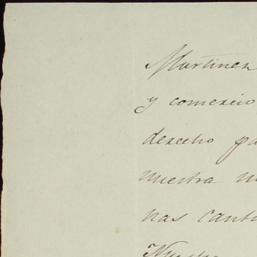 Martinez
y comercio
derecho pa
nuestra m
nas canti